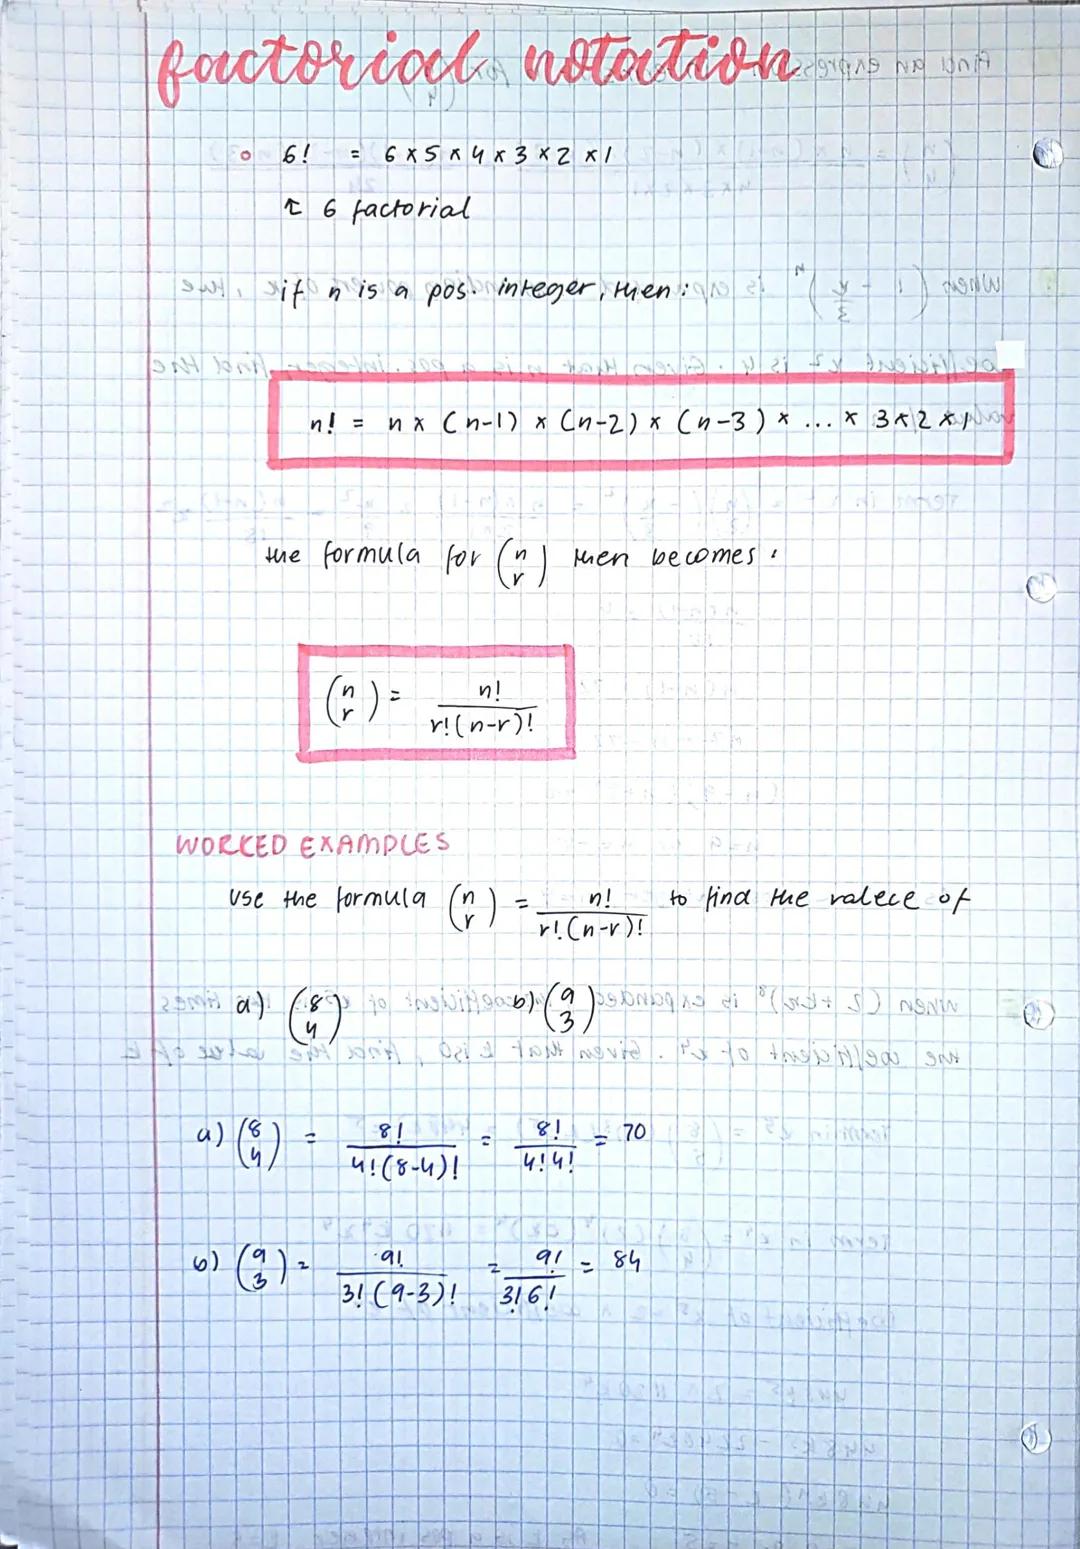 factorial notation
6! = 6 x 5 x 4 x 3 x 2 x 1
6 factorial
if n is a pos. integer, then:
n! = n x (n-1) x (n-2) x (n-3) x ... x 3 x 2 x 1
the formula for (n r) then becomes:
(n r) = n! / r!(n-r)!
WORKED EXAMPLES
use the formula (n r) = n! / r!(n-r)! to find the value of
a) (8 4) b) (9 3)
a) (8 4) = 8! / 4!(8-4)! = 8! / 4!4! = 70
b) (9 3) = 9! / 3!(9-3)! = 9! / 3!6! = 84